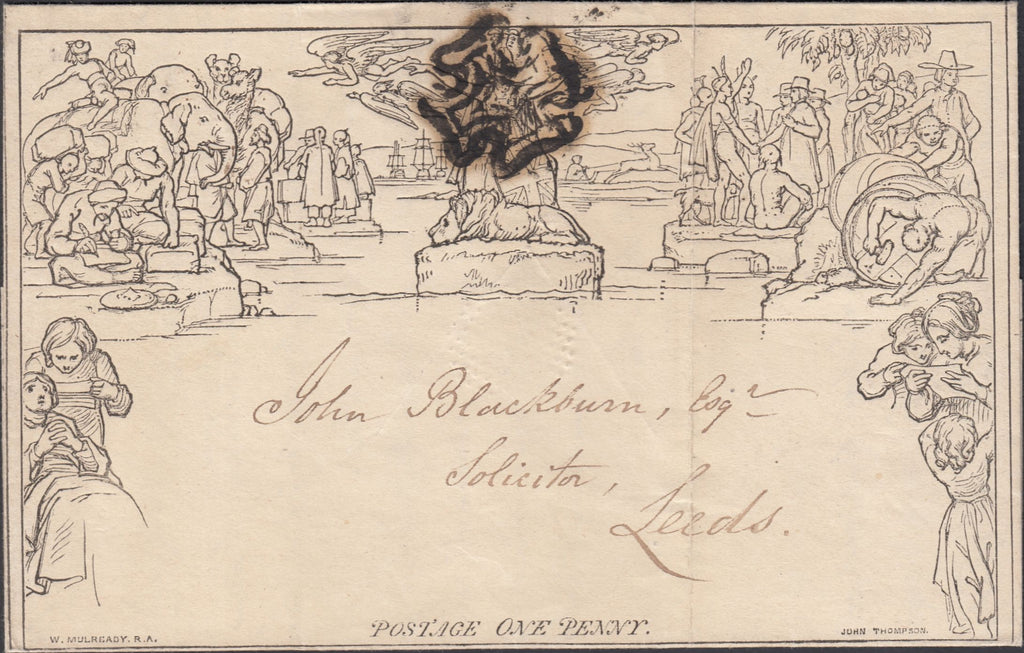 John Blackburn, Esqr
Solicitor,
Leeds.
POSTAGE ONE PENNY.
W. MULREADY. R.A.
JOHN THOMPSON.